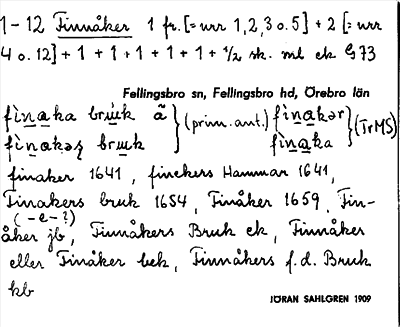 1-12 Finnåker 1 fr. [= urr 1,2,3 o. 5] + 2 [= urr
4 o. 12] + 1 + 1 + 1 + 1 + 1 + 1/2 sk. ml ek G 73
Fellingsbro sn, Fellingsbro hd, Örebro län
fìnaka brúk ã } (prim. ant.) fìnakər } (TrMS)
fìnakəʂ bruk fìnaka
finaker 1641, finckers Hammar 1641,
Finakers bruk 1654, Finåker 1659, Fin-
(-e-?)
åker jb, Finnåkers Bruk ek, Finnåker
eller Finåker bek, Finnåkers f.d. Bruk
kb
JÖRAN SAHLGREN 1909